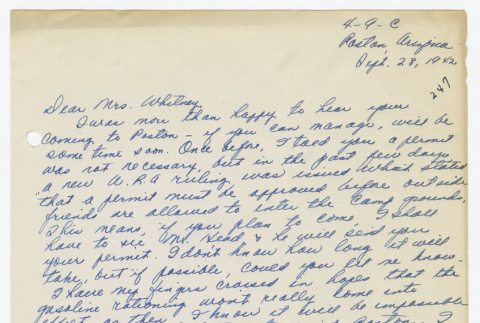 4-9-C
Poston, Arizona
Sept. 28, 1942
247
Dear Mrs. Whitney,
I was more than happy to hear your
coming to Poston - if you can manage, will be
some time soon. Once before, I told you a permit
was not necessary but in the past few days
a new W.R.A ruling was issued which states
"that a permit must be approved before outside
friends are allowed to enter the camp grounds.
This means, if you plan to come, I shall
have to see Mr. Head & he will send you
your permit. I don't know how long it will
take, but if possible, could you let me know.
I have my fingers crossed in hopes that the
gasoline rationing won't really come into
effect as then, I know it will be impossible